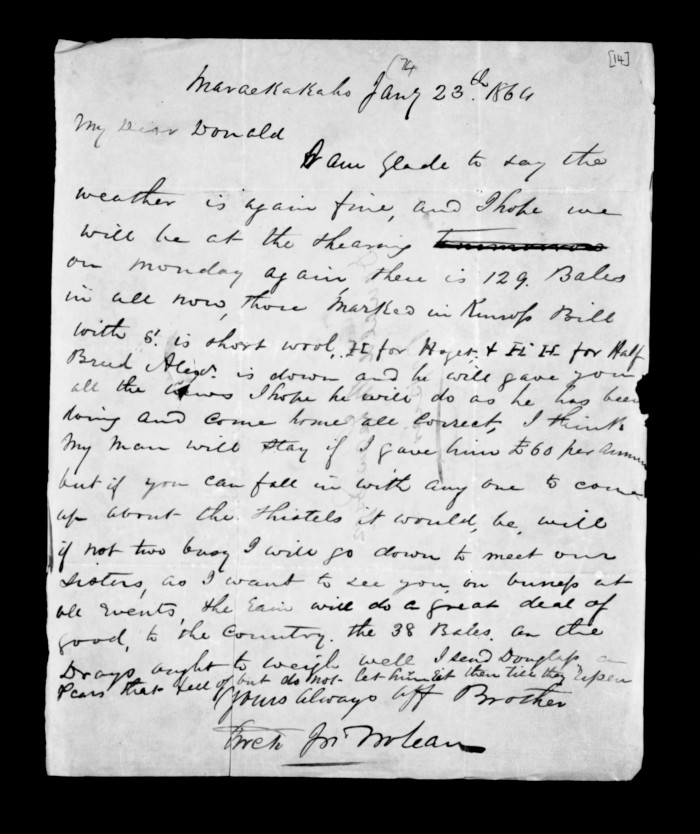 [14]
74
Maraekakaho Jany 23th. 1864
My Dear Donald
I am glade to say the
weather is again fine, and I hope we
will be at the shearing
on monday again, there is 129. Bales
in all now, those marked in Kinross Bill
with S. is short wool, H for Hoget, & H H for Half
Bred Alexr. is down and he will gave you
all the news I hope he will do as he has been
doing and come home all correct, I think
my man will stay if I gave him £60 per annum
but if you can fall in with any one to come
up about the thistels it would, be, will
if not two busy I will go down to meet our
sisters, as I want to see you, on buness at
all Events, the Eain will do a great deal of
good, to the Country. the 38 Bales. on the
Drays ought to weigh well I send Douglass a
Pears that fell of but do not let him Eat them till they ripen
Yours always aff Brother
Arch Jn McLean